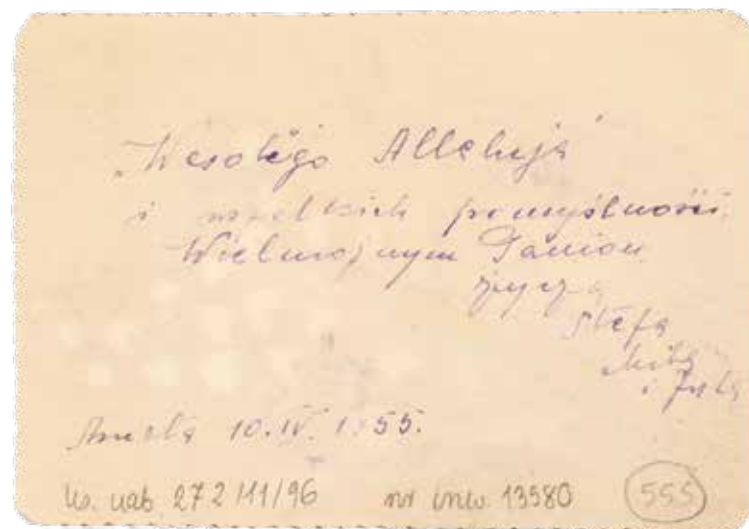 „Wesołego Alleluja"
i wszelkich pomyślności
Wielmożnym Paniom
życzą
Stefa
i
10.IV.1955.
ks. nab. 272/11/96 nr inw. 13580 555